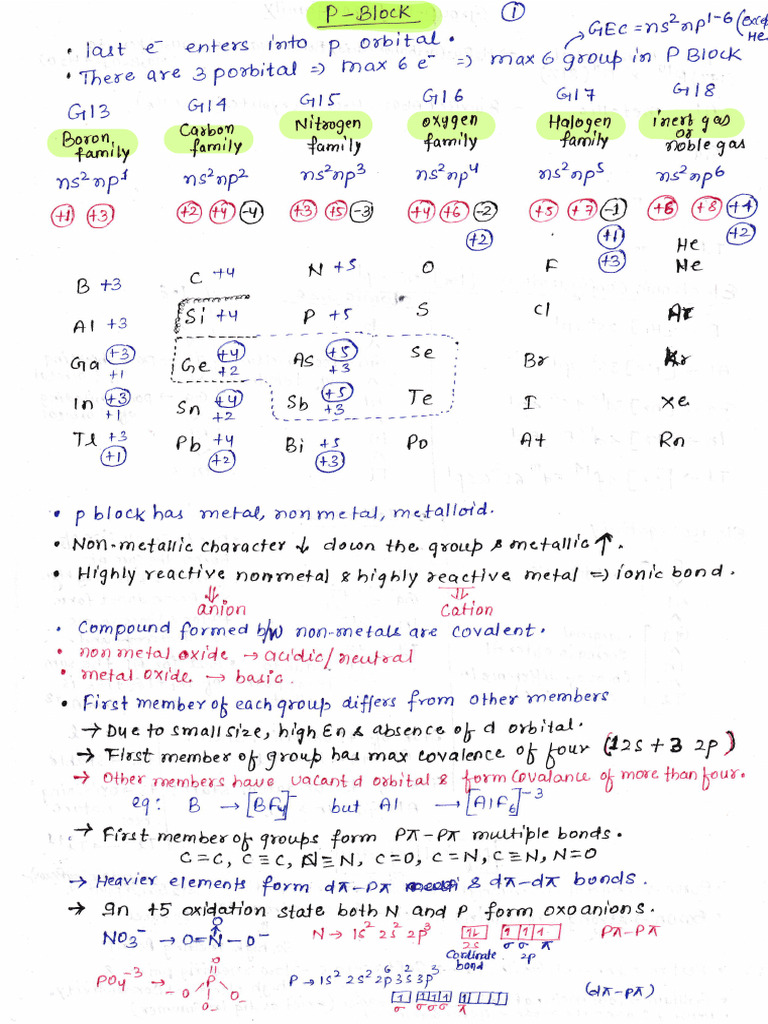 P-Block
①
• last e⁻ enters into p orbital.
GEC = ns²np¹⁻⁶ (except He
• There are 3 porbital ⇒ max 6 e⁻ ⇒ max 6 group in P BLOCK
G13 G14 G15 G16 G17 G18
Boron family Carbon family Nitrogen family oxygen family Halogen family inert gas or noble gas
ns²np¹ ns²np² ns²np³ ns²np⁴ ns²np⁵ ns²np⁶
+1 +3 +2 +4 -4 +3 +5 -3 +4 +6 -2 +5 +7 -1 +6 +8 +4
+2 +1 +2
+3
He
B +3 C +4 N +5 O F Ne
Al +3 Si +4 P +5 S Cl Ar
Ga +3 +1 Ge +4 +2 As +5 +3 Se Br Kr
In +3 +1 Sn +4 +2 Sb +5 +3 Te I Xe
Tl +3 +1 Pb +4 +2 Bi +5 +3 Po At Rn
• p block has metal, non metal, metalloid.
• Non-metallic character ↓ down the group & metallic ↑.
• Highly reactive nonmetal & highly reactive metal ⇒ ionic bond.
⇓ ⇓
anion Cation
• Compound formed b/w non-metals are covalent.
• non metal oxide → acidic/neutral
• metal oxide → basic.
• First member of each group differs from other members
→ Due to small size, high En & absence of d orbital.
→ First member of group has max covalence of four (1 2s + 3 2p)
→ Other members have vacant d orbital & form covalance of more than four.
eg: B → [BF4]⁻ but Al → [AlF6]⁻³
→ First member of groups form Pπ-Pπ multiple bonds.
C=C, C≡C, N≡N, C=O, C=N, C≡N, N=O
→ Heavier elements form dπ-Pπ & dπ-dπ bonds.
→ In +5 oxidation state both N and P form oxoanions.
O
NO3⁻ → O=N-O⁻ N → 1s² 2s² 2p³ 1↓ 1 1 1 Pπ-Pπ
2s σ σ π
Cordinate bond 2p
O
PO4⁻³ → ⁻O P O⁻ P → 1s² 2s² 2p⁶ 3s² 3p³ (dπ-pπ)
O⁻
1 1 1 1 1
σ σ σ σ π